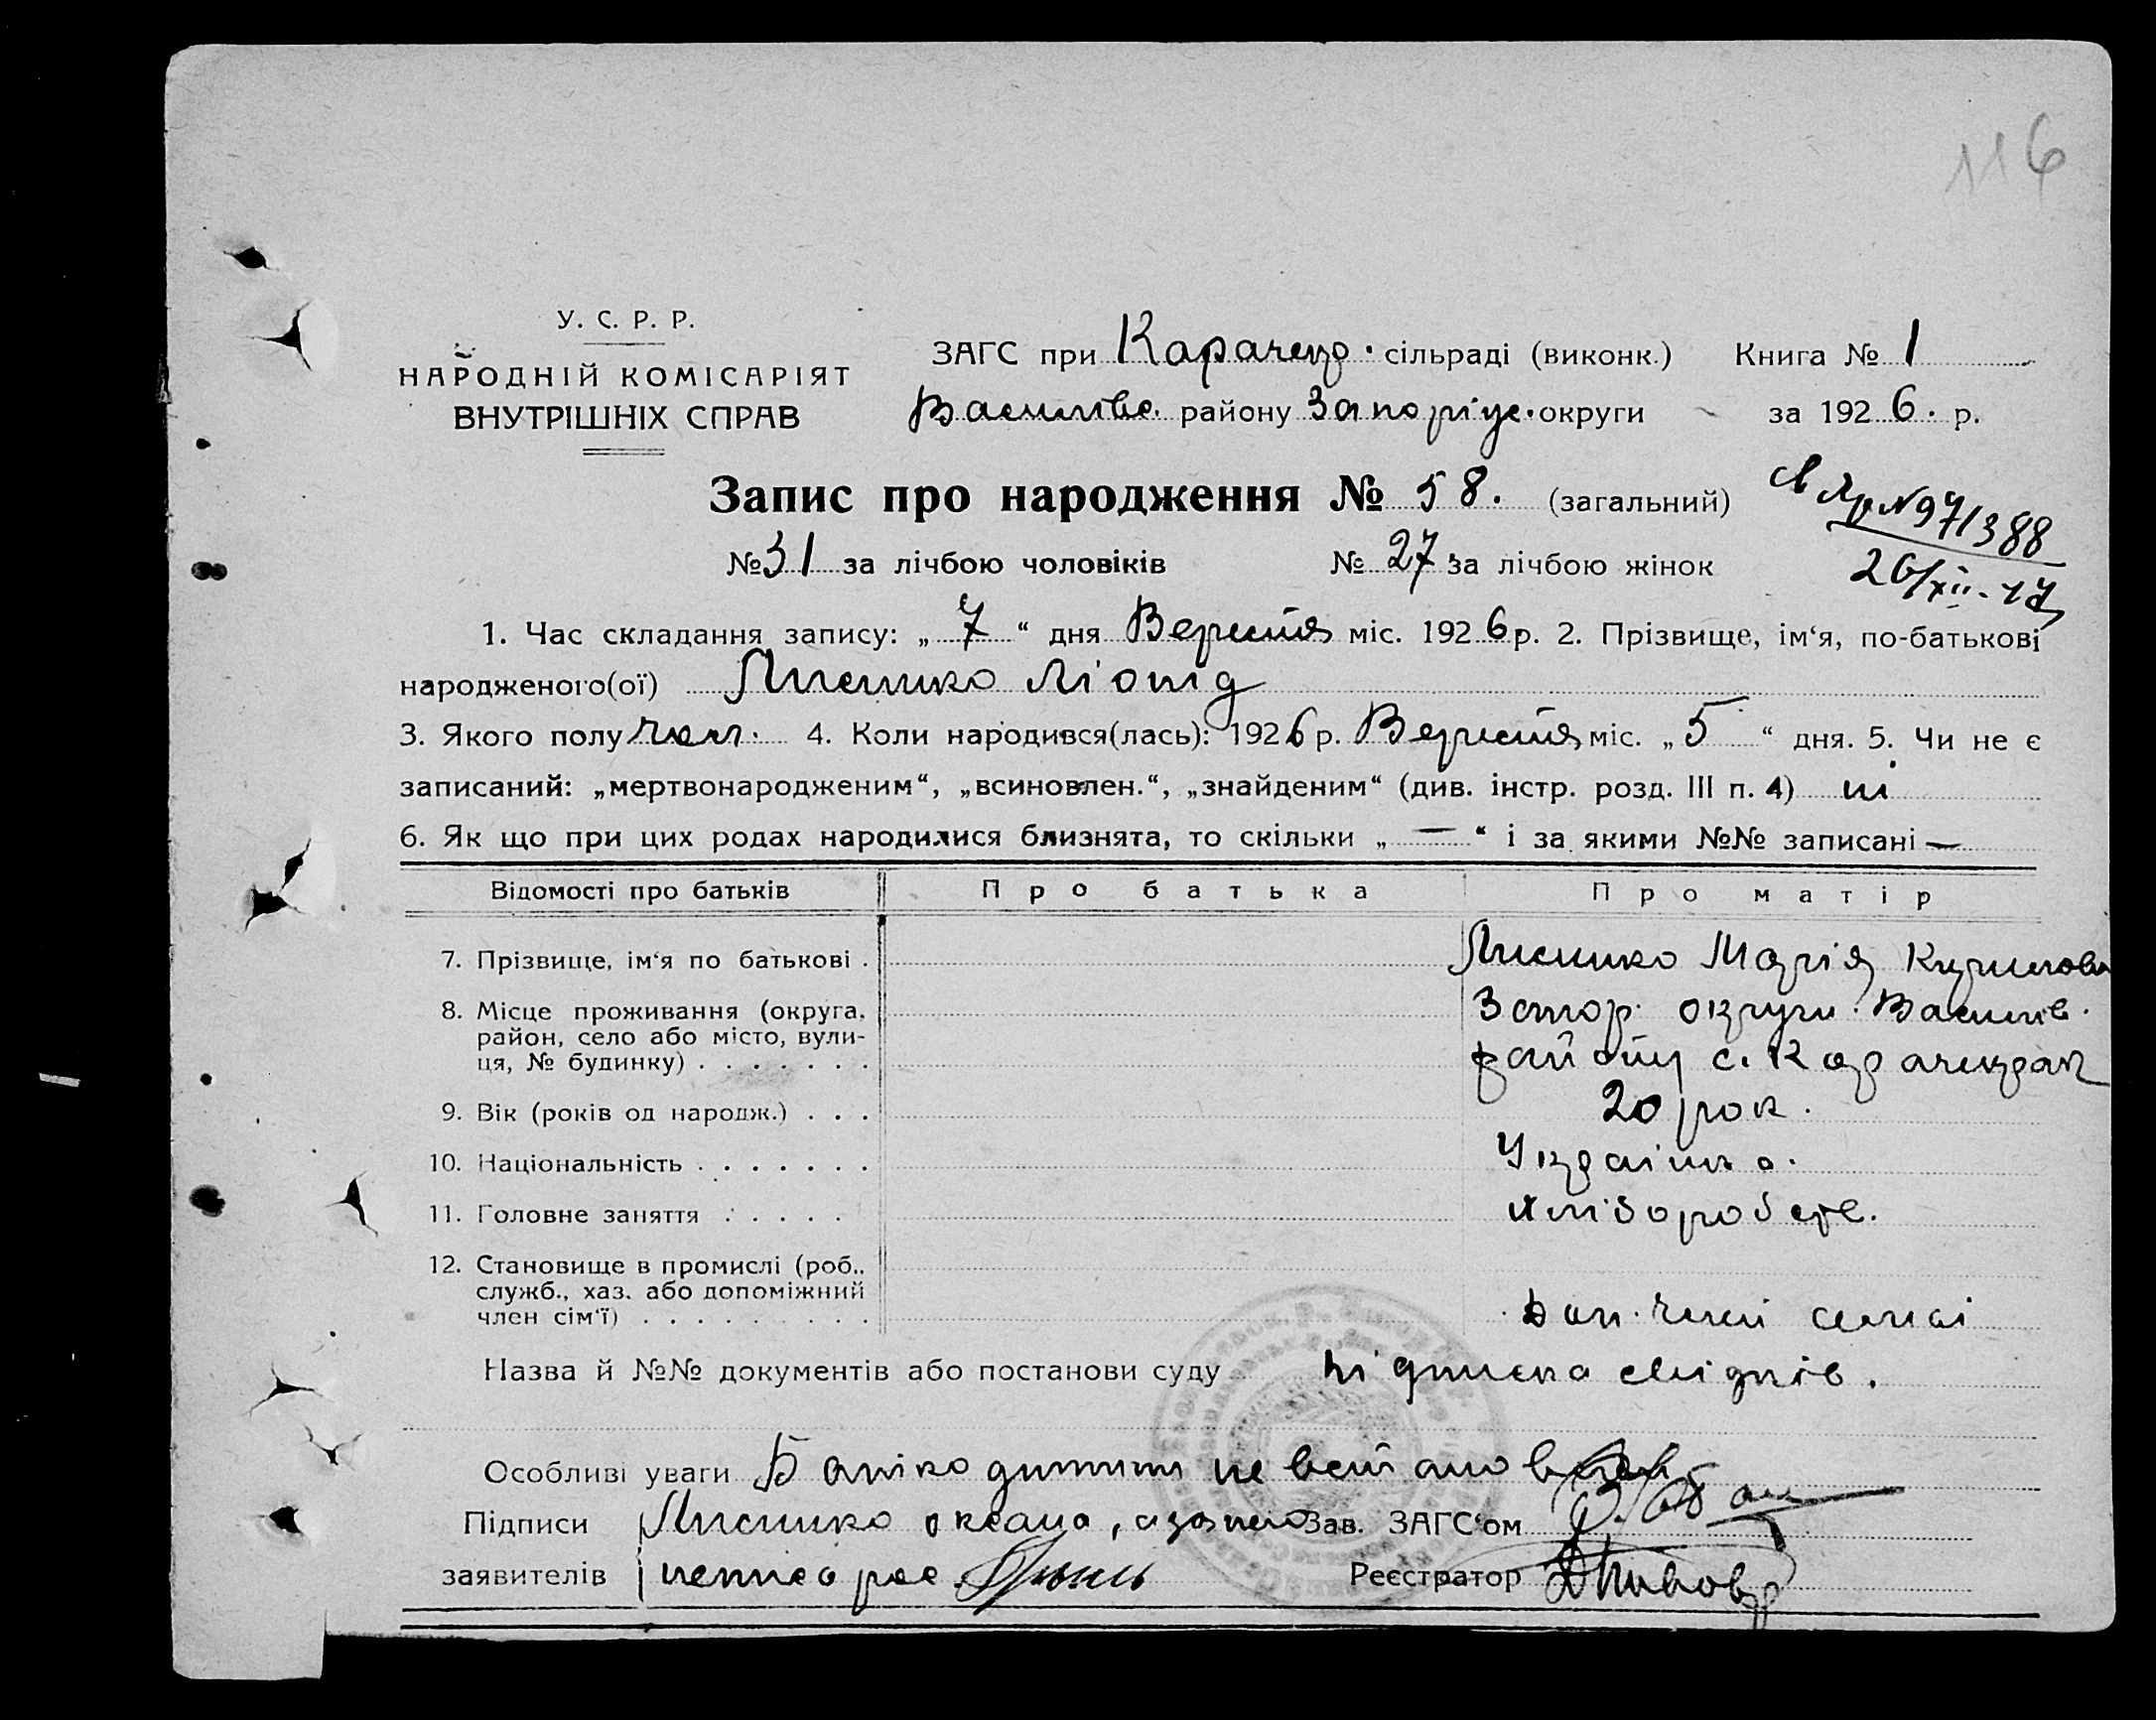 116
У. С. Р. Р.
НАРОДНІЙ КОМІСАРІЯТ
ВНУТРІШНІХ СПРАВ
ЗАГС при Карачекр. сільраді (виконк.) Книга № 1
Василівс. району Запоріж. округи за 1926. р.
Запис про народження № 58. (загальний)
№ 31 за лічбою чоловіків № 27 за лічбою жінок
№ 971388
26/XII-47
1. Час складання запису: „7“ дня Вересня міс. 1926 р. 2. Прізвище, ім‘я, по-батькові
народженого(ої) Лисенко Ліонід
3. Якого полу чол. 4. Коли народився(лась): 1926 р. Вересня міс. „5“ дня. 5. Чи не є
записаний: „мертвонародженим“, „всиновлен.“, „знайденим“ (див. інстр. розд. III п. 4) ні
6. Як що при цих родах народилися близнята, то скільки „—“ і за якими №№ записані —
Відомості про батьків Про батька Про матір
7. Прізвище, ім‘я по батькові . Лисенко Марія Кирилова
8. Місце проживання (округа, Запор. округи Василів.
район, село або місто, вули-
ця, № будинку) . . . . . . . району с. Карачекрак
9. Вік (років од народж.) . . . 20 рок.
10. Національність . . . . . . . Українка.
11. Головне заняття . . . . . хліборобств.
12. Становище в промислі (роб.,
служб., хаз. або допоміжний
член сім‘ї) . . . . . . . . . Доп. член семї
Назва й №№ документів або постанови суду підписка свідків.
Особливі уваги Батько дитини не встановлен
Підписи Лисенко Оксана, а за нею Зав. ЗАГС‘ом
заявителів неписьмен. рос. Реєстратор